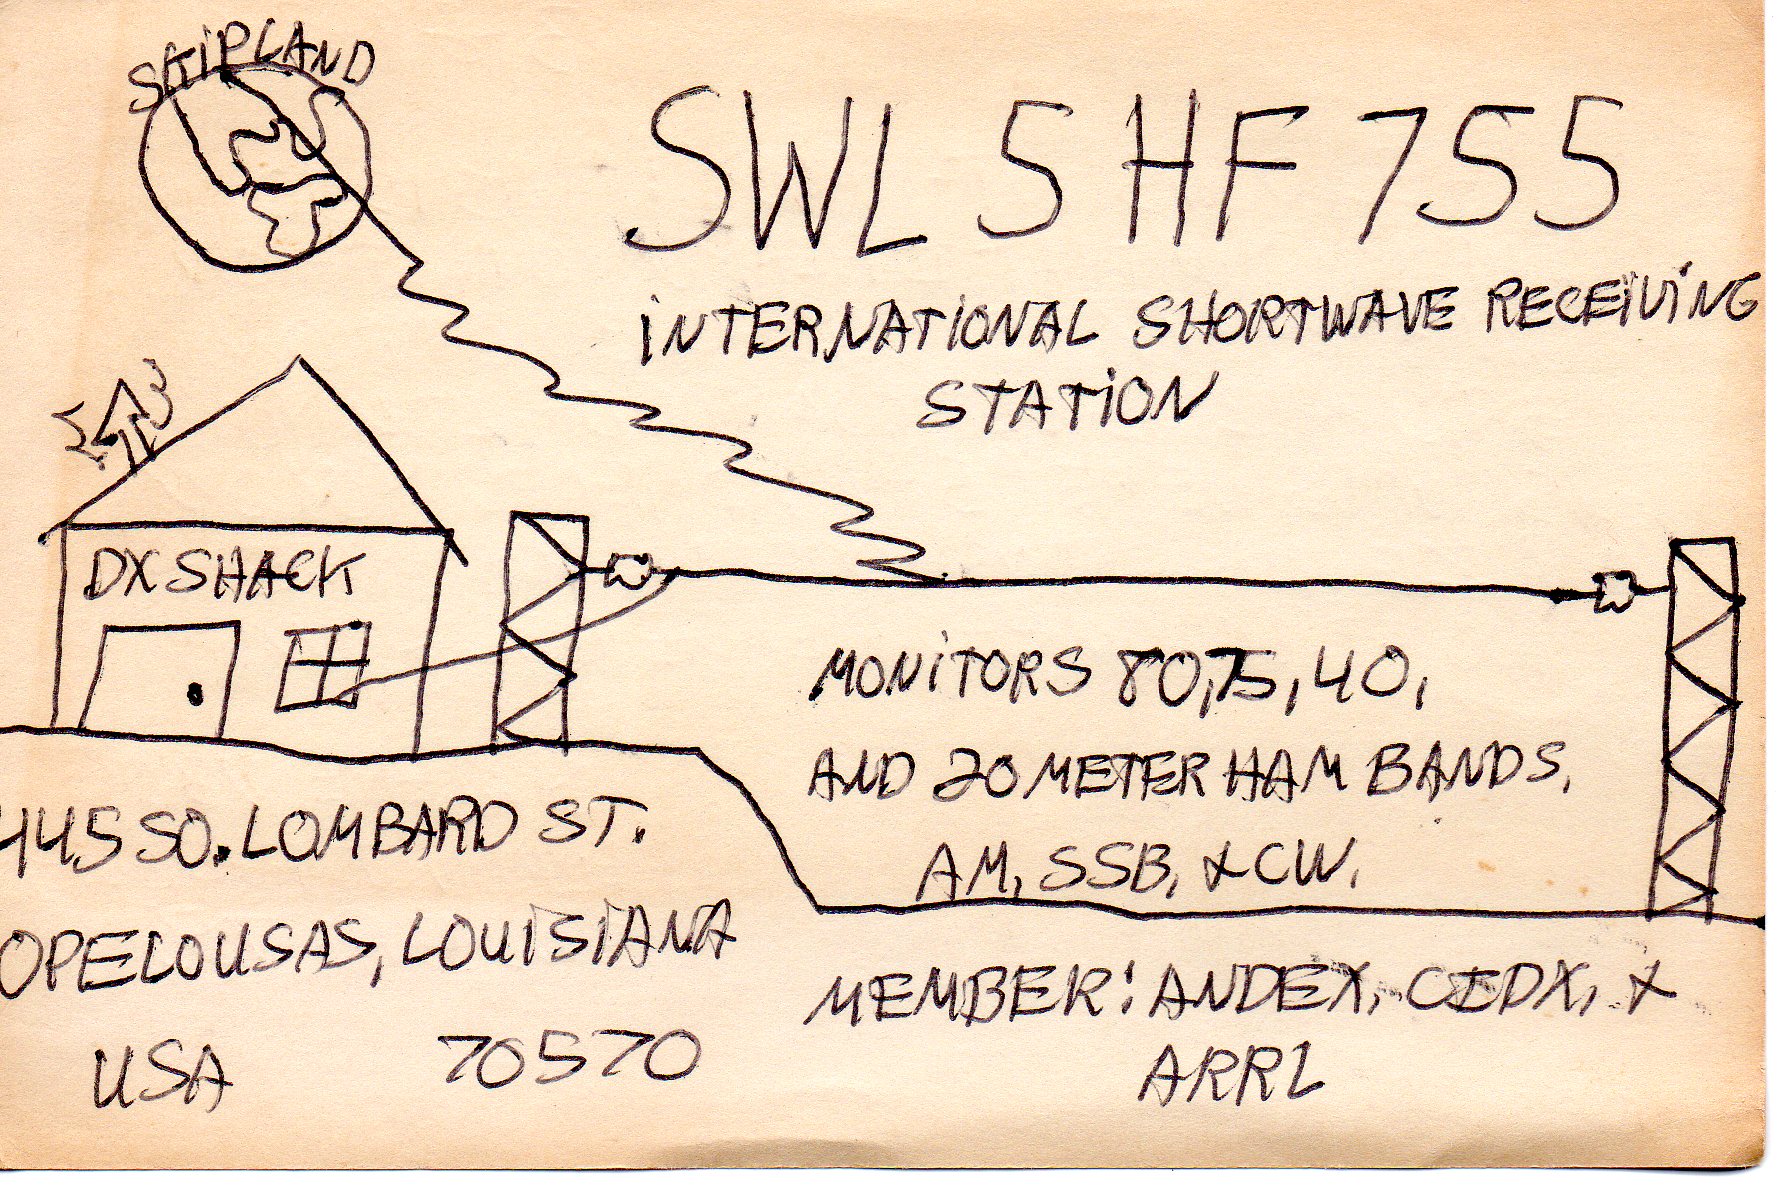 SKIPLAND
SWL 5 HF 755
INTERNATIONAL SHORTWAVE RECEIVING
STATION
DX SHACK
MONITORS 80, 75, 40,
AND 20 METER HAM BANDS,
AM, SSB, & CW.
445 SO. LOMBARD ST.
OPELOUSAS, LOUISIANA
USA 70570
MEMBER: ANDEX, CIDX, &
ARRL